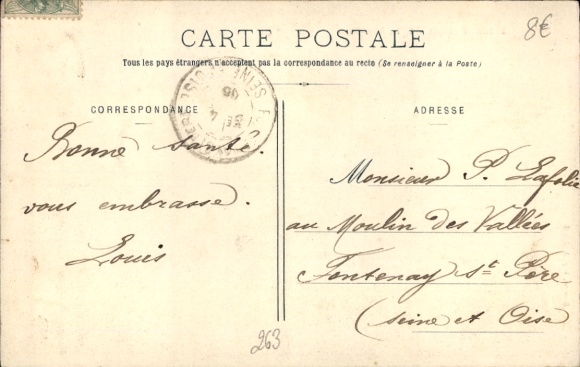 8€
CARTE POSTALE
Tous les pays étrangers n'acceptent pas la correspondance au recto (Se renseigner à la Poste)
CORRESPONDANCE
ADRESSE
SEINE ET OISE
Bonne santé.
vous embrasse.
Louis
Monsieur P. Lafolie
au Moulin des Vallées
Fontenay St Père
(Seine et Oise
263